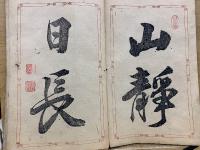 山靜
日長